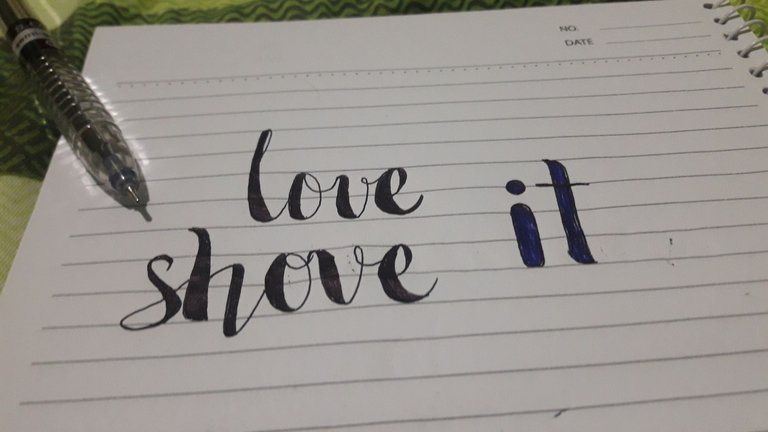 NO.
DATE
love
shove it